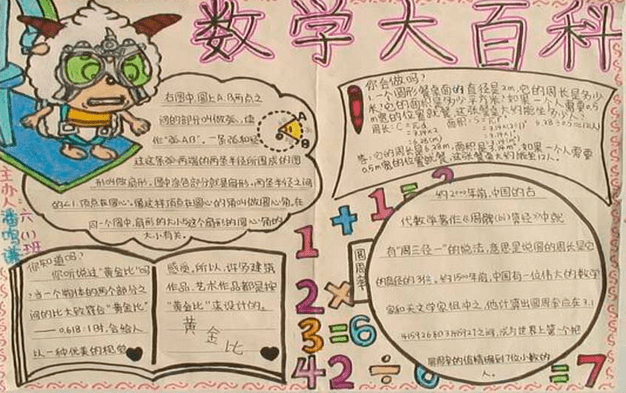 数学大百科
主办人:六(1)班
右图中,圆上A、B两点之
间的部分叫做弧,读
作"弧AB",一条弧和经
过这条弧两端的两条半径所围成的图
形叫做扇形。图中涂色部分就是扇形。两条半径之间
的∠1,顶点在圆心。像这样顶点在圆心的角叫做圆心角。在
同一个圆中,扇形的大小与这个扇形的圆心角的
大小有关。
A
B
你会做吗?
1.一个圆形餐桌面的直径是2m,它的周长是多少
米?它的面积是多少平方米?如果一个人需要0.5
m宽的位置就餐,这张餐桌大约能坐多少人?
周长:C=πd
=3.14×2
答:它的周长是6.28m,面积是3.14m²,如果一个人需要
0.5m宽的位置就餐,这张餐桌大约能坐12人。
你知道吗?
你听说过"黄金比"吗
?当一个物体的两个部分之
间的比大致符合"黄金比"
——0.618:1时,会给人
以一种优美的视觉
感受。所以,许多建筑
作品、艺术作品都是按
"黄金比"来设计的。
黄金比
圆周率
约2000年前,中国的古
代数学著作《周髀算经》中就
有"周三径一"的说法,意思是说圆的周长是它
的直径的3倍。约1500年前,中国有一位伟大的数学
家和天文学家祖冲之,他计算出圆周率应在3.1
415926和3.1415927之间,成为世界上第一个把
圆周率的值精确到7位小数的
人。
1+1=2
2×
3=6
42÷6=7